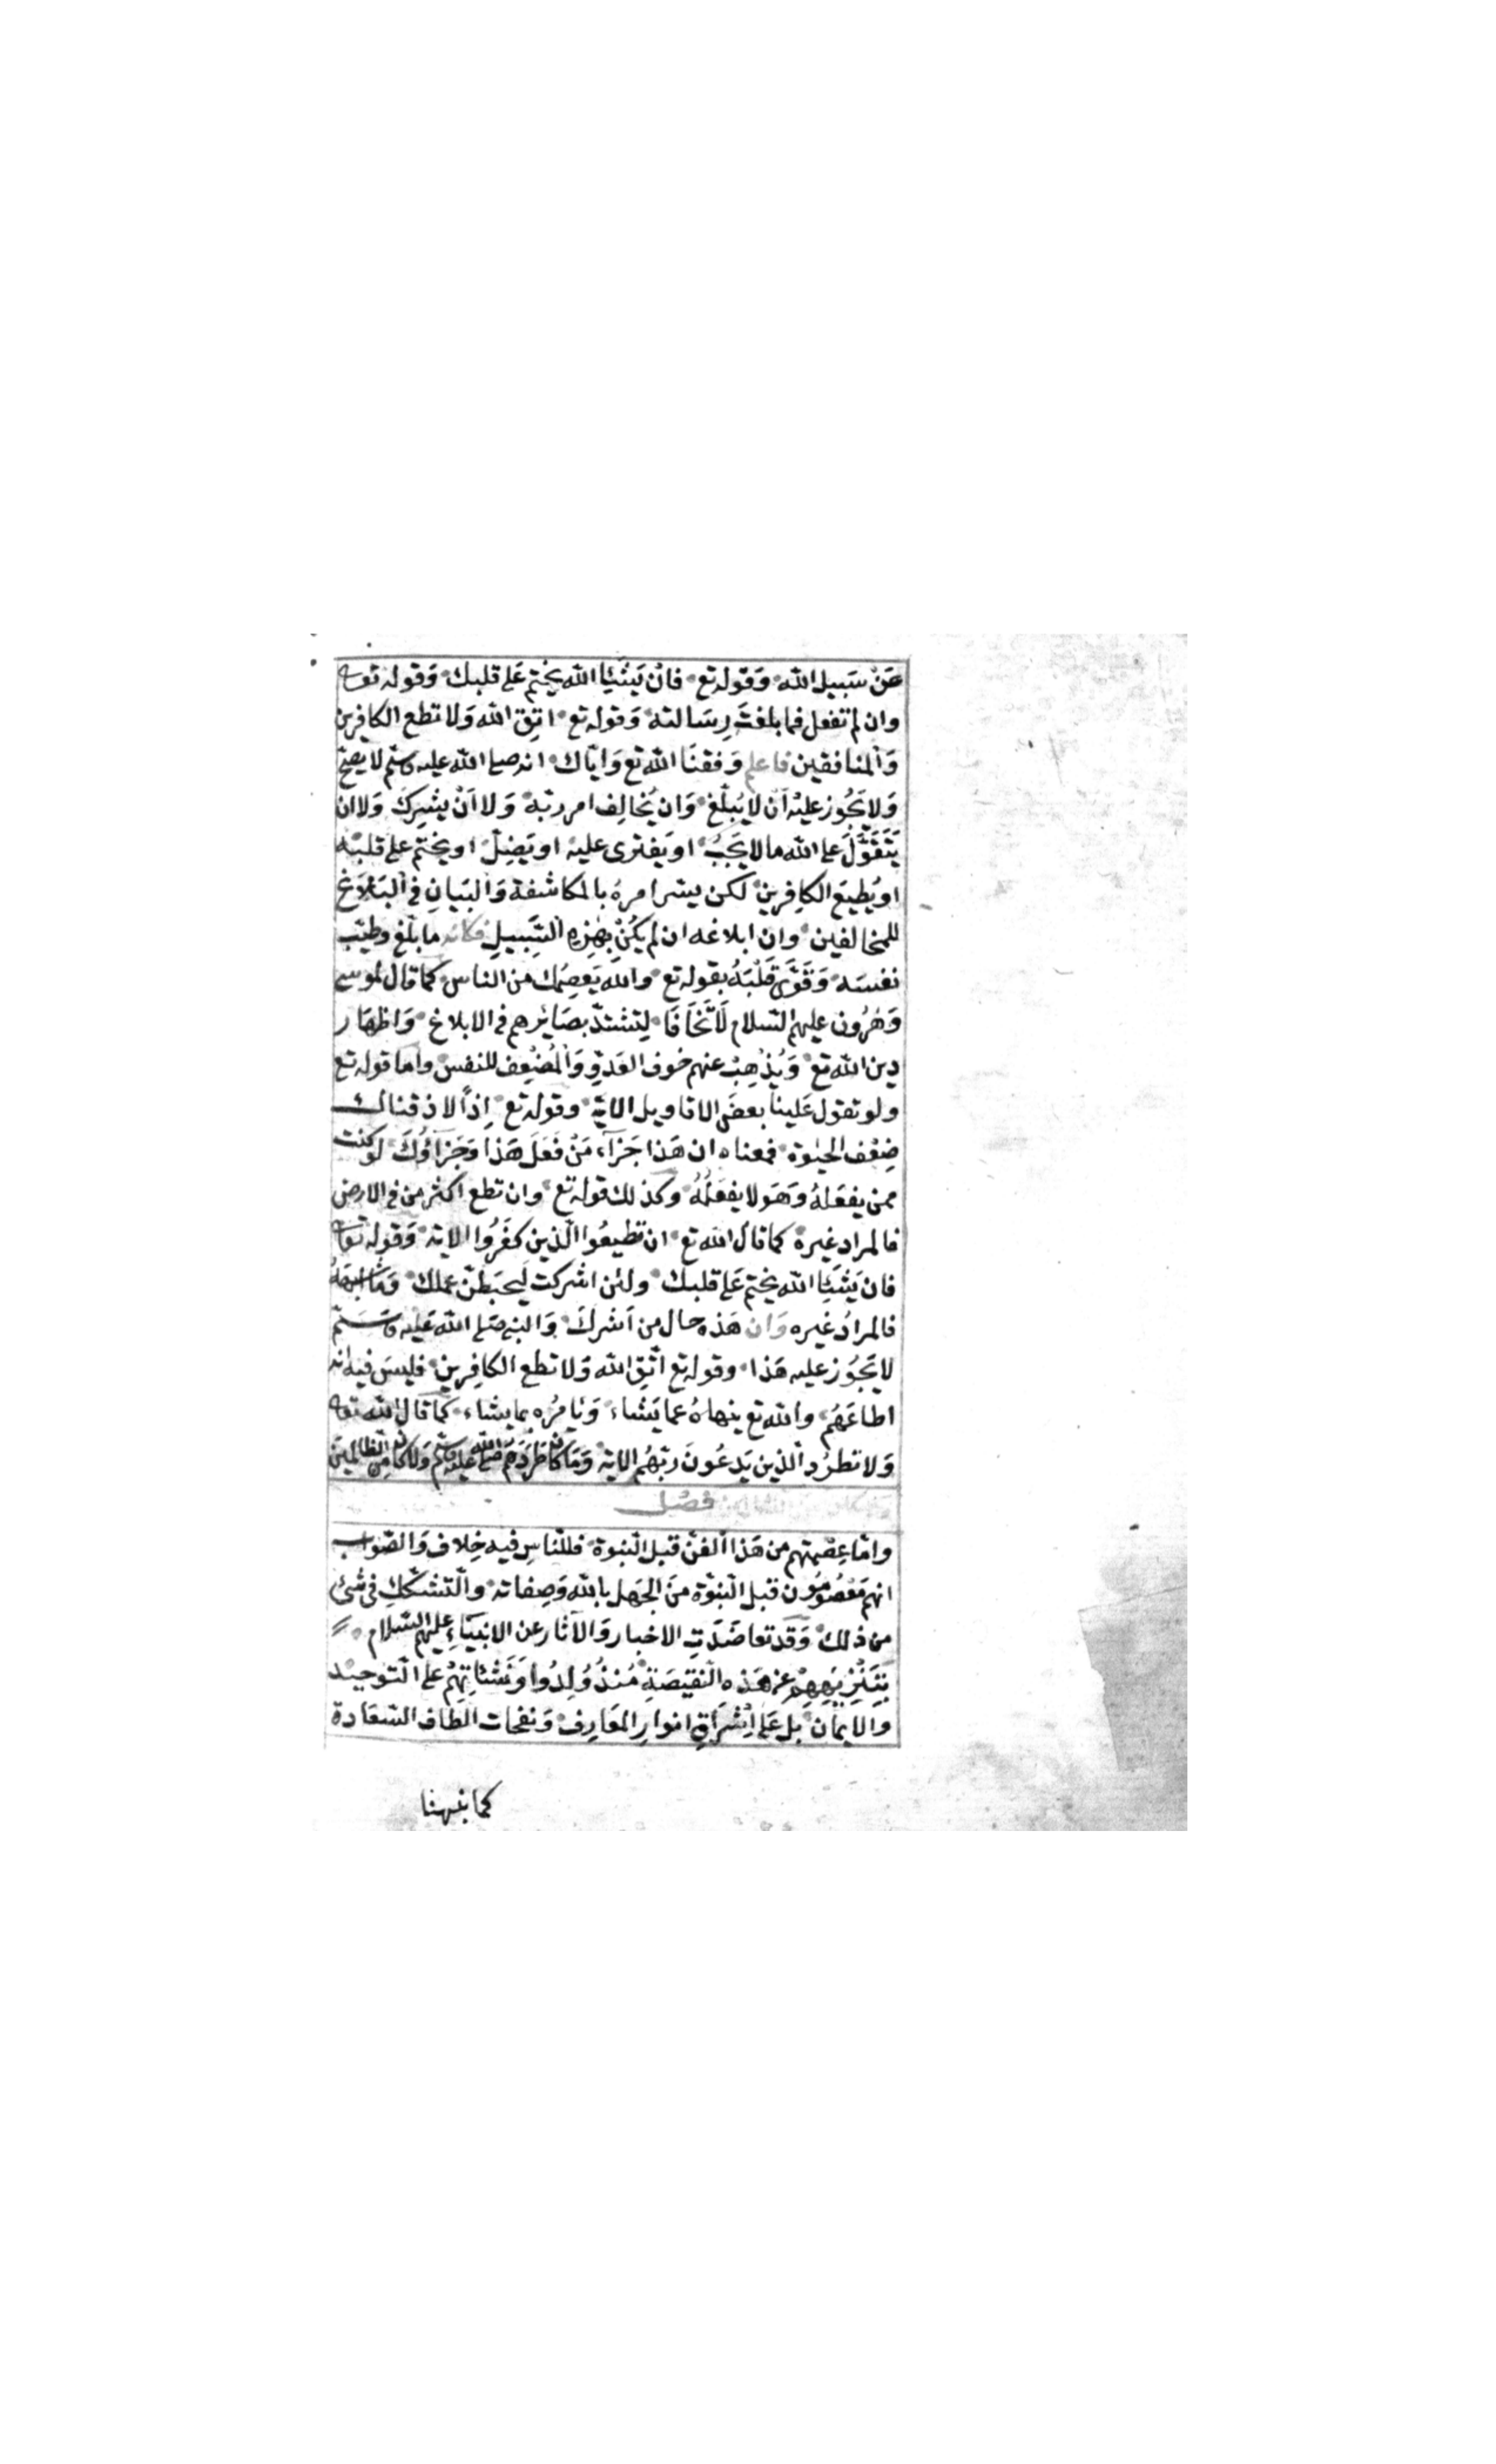 عَنْ سَبيل الله وَقوله تع فانْ يَشَأِ الله يختم عَلى قلبك وَقوله تعا
وان لم تفعل فما بلغتَ رِسَالته وَقوله تع اتق الله وَلا تطع الكافرين
وَالمنافقين فاعلم وَفقنَا الله تع وَايّاك انه صلى الله عليه وسلم لا يصحّ
وَلا يَجُوز عليْه اَن لا يُبلّغ وَان يُخالِف امر ربّه وَلا اَنْ يُشْرِكَ وَلا ان
يَتَقَوَّلَ على الله ما لا يَجِبُ او يَفترى عليه او يَضِلّ او يختم على قلبه
او يُطيعَ الكافِرين لكن يسّر امرهُ بالمكاشفة وَالبَيانِ في البَلاغ
للمخالفين وان ابلاغه ان لم يكُنْ بهٰذِهِ السَّبيلِ فكانه ما بلّغ وطيّب
نفسَه وَقَوَّى قلْبَهُ بقوله تع والله يَعصِمُك من الناس كما قال لموسى
وَهٰرُون عليهم السلام لَا تَخَافَا لِتشتدّ بصَائرهم في الابلاغ وَاظهَار
دين الله تع وَيُذهِبَ عنهم خوف العَدوِّ وَالمُضْعِف للنفس واما قوله تع
ولو تقول عَلينا بعضَ الاقاويل الاية وقوله تع اِذاً لاذقناك
ضِعْف الحيٰوة فمعناه ان هَذا جَزآءُ مَنْ فَعَلَ هَذا وَجَزآؤُكَ لوكنت
ممن يفعَلهُ وَهَو لا يفعَلُهُ وكذلك قوله تع وان تطع اكثر من في الارض
فالمراد غيره كما قال الله تع ان تطيعُوا الّذين كفَرُوا الاية وَقوله تعا
فان يَشَأِ الله يختم عَلى قلبك ولئن اشركت ليَحبَطنّ عملك وَمَا اشبَهَهُ
فالمرادُ غيره وَان هَذه حال من اَشركَ وَالنبى صَلى الله عَليْه وَسَلّم
لا يَجُوز عليه هَذا وقوله تع اتّقِ الله وَلا تطع الكافِرين فليسَ فيه انه
اطاعَهُمْ والله تع ينهاهُ عما يَشاء وَيَامُرُه بما يشاء كما قال الله تعا
وَلا تطرُد الّذين يَدعُونَ ربّهُم الاية وَمَا كان طرَدَهم صلى الله عليه وسلم وَلا كان من الظالمين
فصل
وامّا عِصْمتهم من هَذا الفنّ قبل النبوة فللنّاسِ فيه خِلاف وَالصّوَاب
انهم مَعْصُومُون قبل النّبوّة منَ الجهَل بالله وَصِفاته والتّشكّكِ في شئ
من ذلك وَقد تعاضَدَتِ الاخبار وَالآثار عن الانبيَاءِ عليهم السّلام
بتَنزِيهِهِمْ عن هَذه النّقيصَةِ مُنذُ وُلِدُوا وَنَشْأتِهِمْ على التّوحيْد
والايمَان بل عَلى اِشْرَاقِ انوارِ المعَارِف وَنفحات الطاف السّعَادة
كما نبهنا